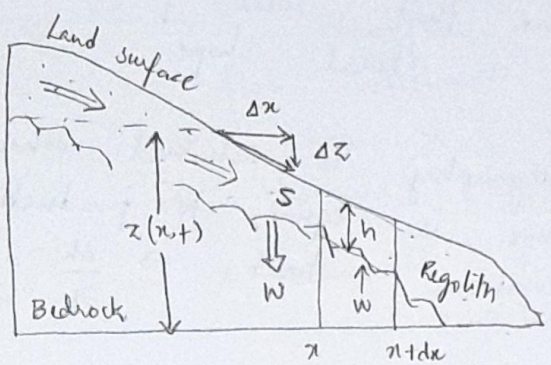 Land surface
Δx
ΔZ
S
z(x,t)
h
W
w
Regolith
Bedrock
x
x+dx